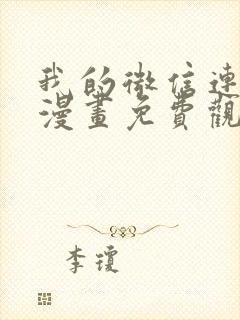 我的微信連
漫畫免費觀
李瓊